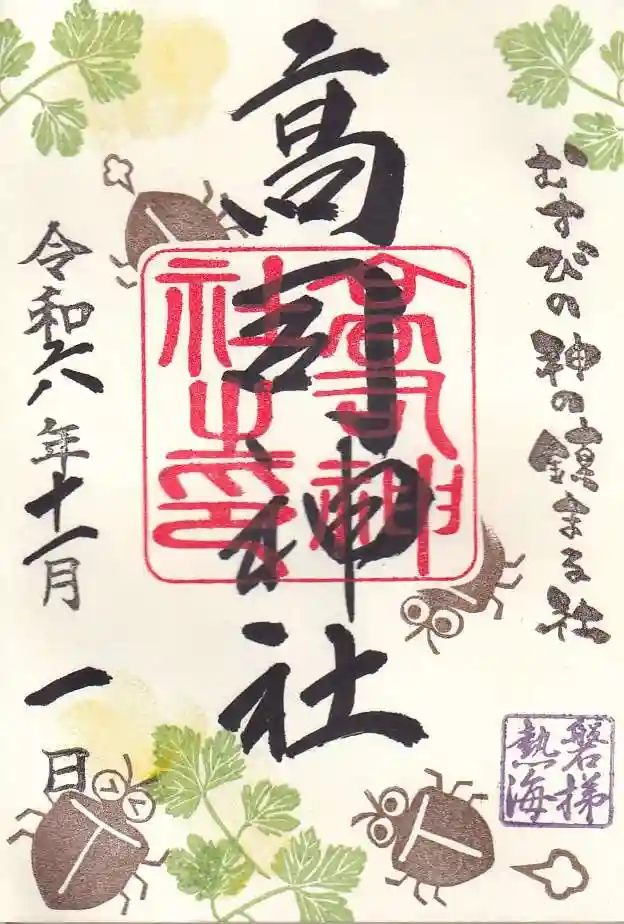 むすびの神の鎮まる社
高司神社
高司神社之印
令和六年十一月一日
磐梯熱海